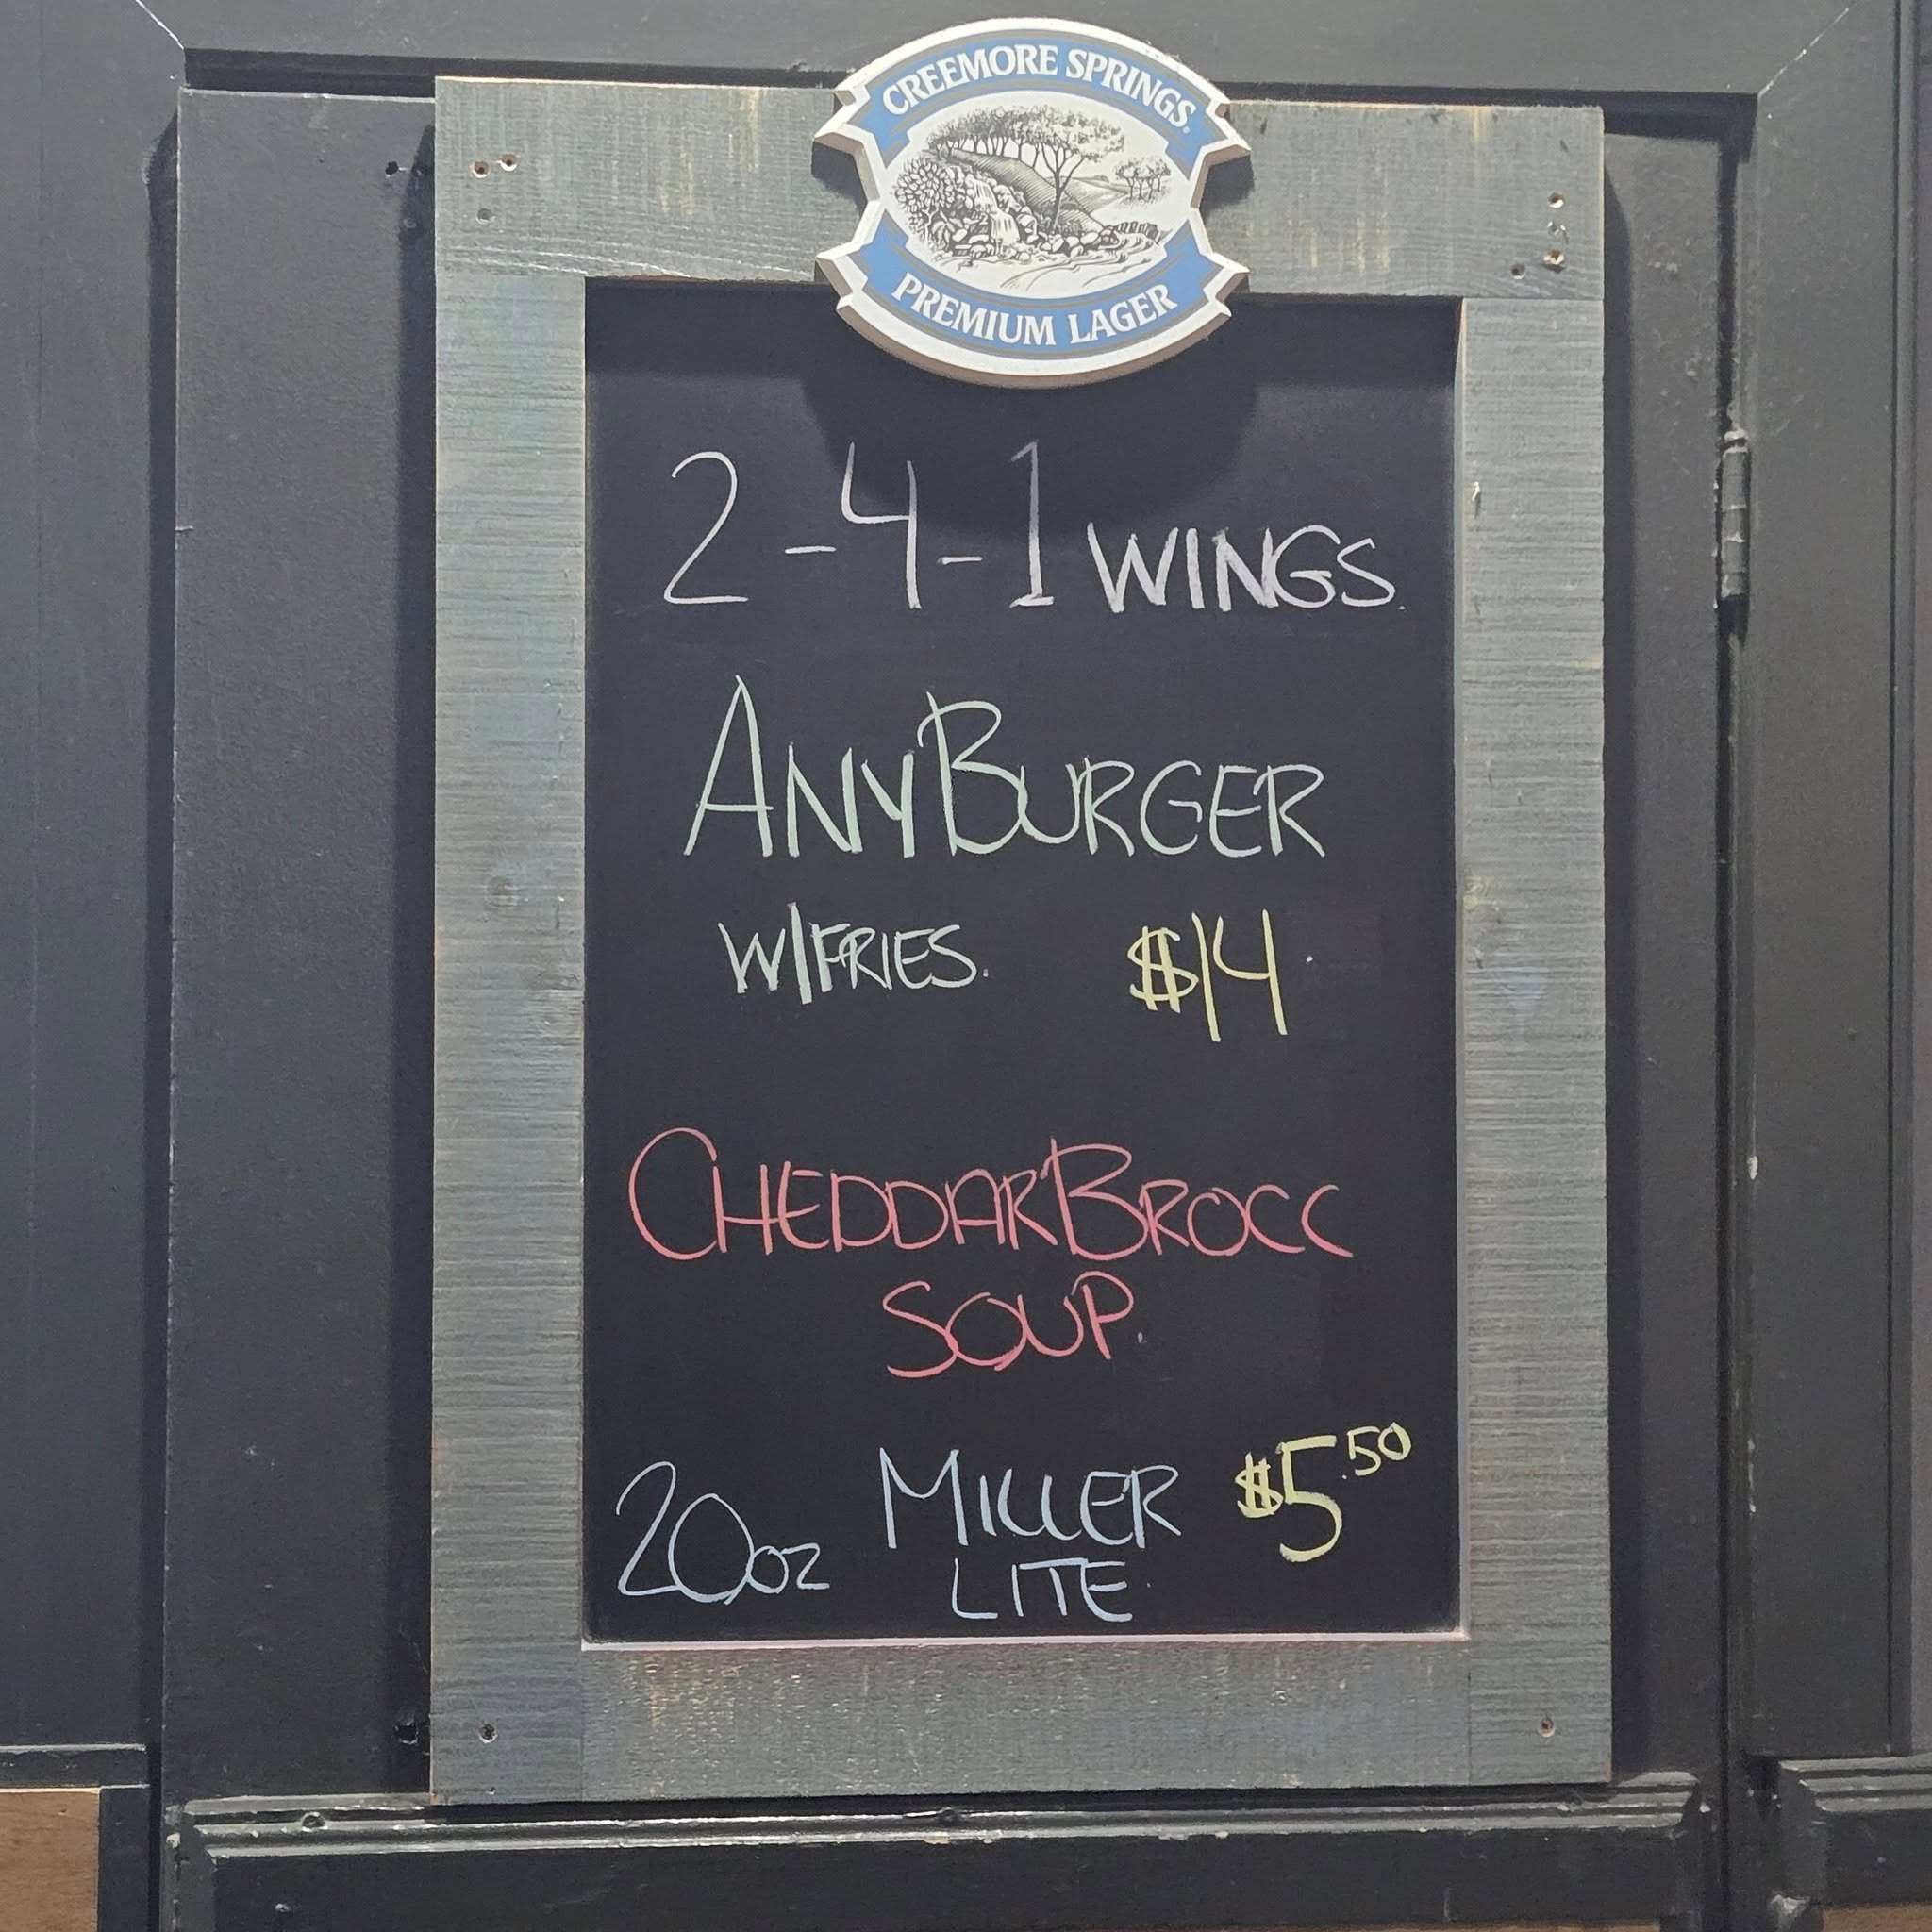 CREEMORE SPRINGS®
PREMIUM LAGER
2-4-1 WINGS.
ANY BURGER
W/FRIES. $14.
CHEDDAR BROCC
SOUP.
20oz MILLER $5.50
LITE.